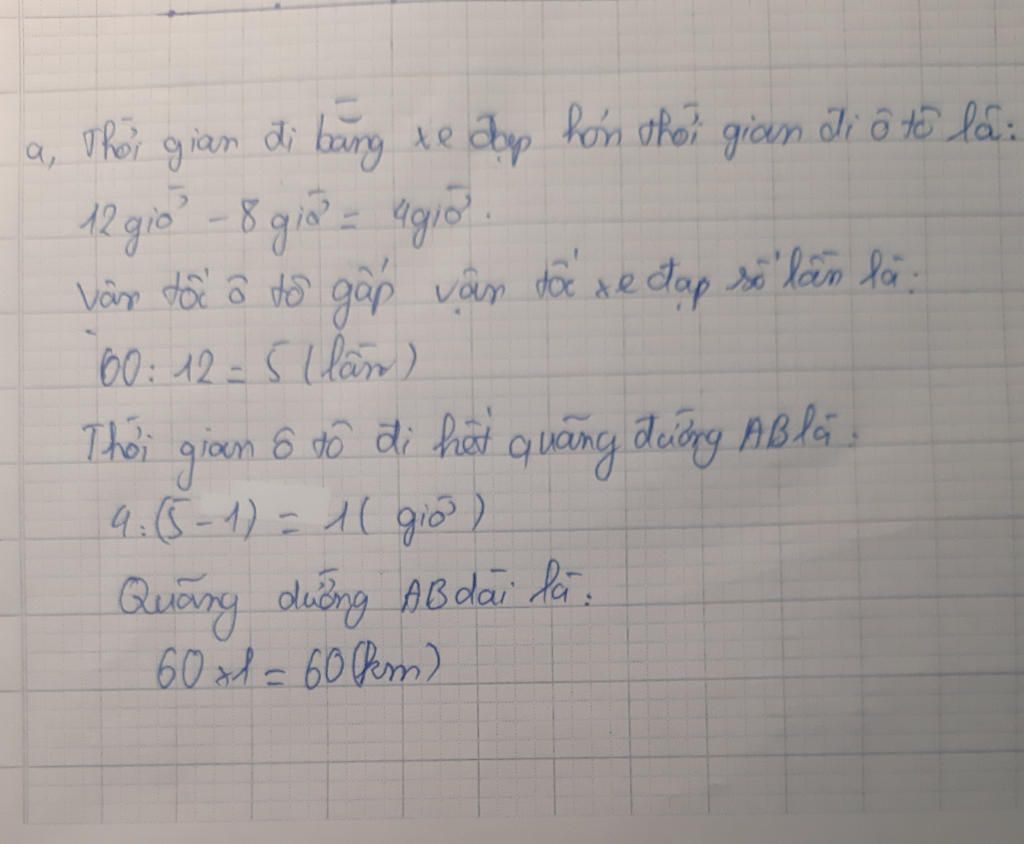 a, Thời gian đi bằng xe đạp hơn thời gian đi ô tô là:
12 giờ - 8 giờ = 4 giờ.
Vận tốc ô tô gấp vận tốc xe đạp số lần là:
60 : 12 = 5 (lần)
Thời gian ô tô đi hết quãng đường AB là:
4 : (5 - 1) = 1 (giờ)
Quãng đường AB dài là:
60 x 1 = 60 (km)